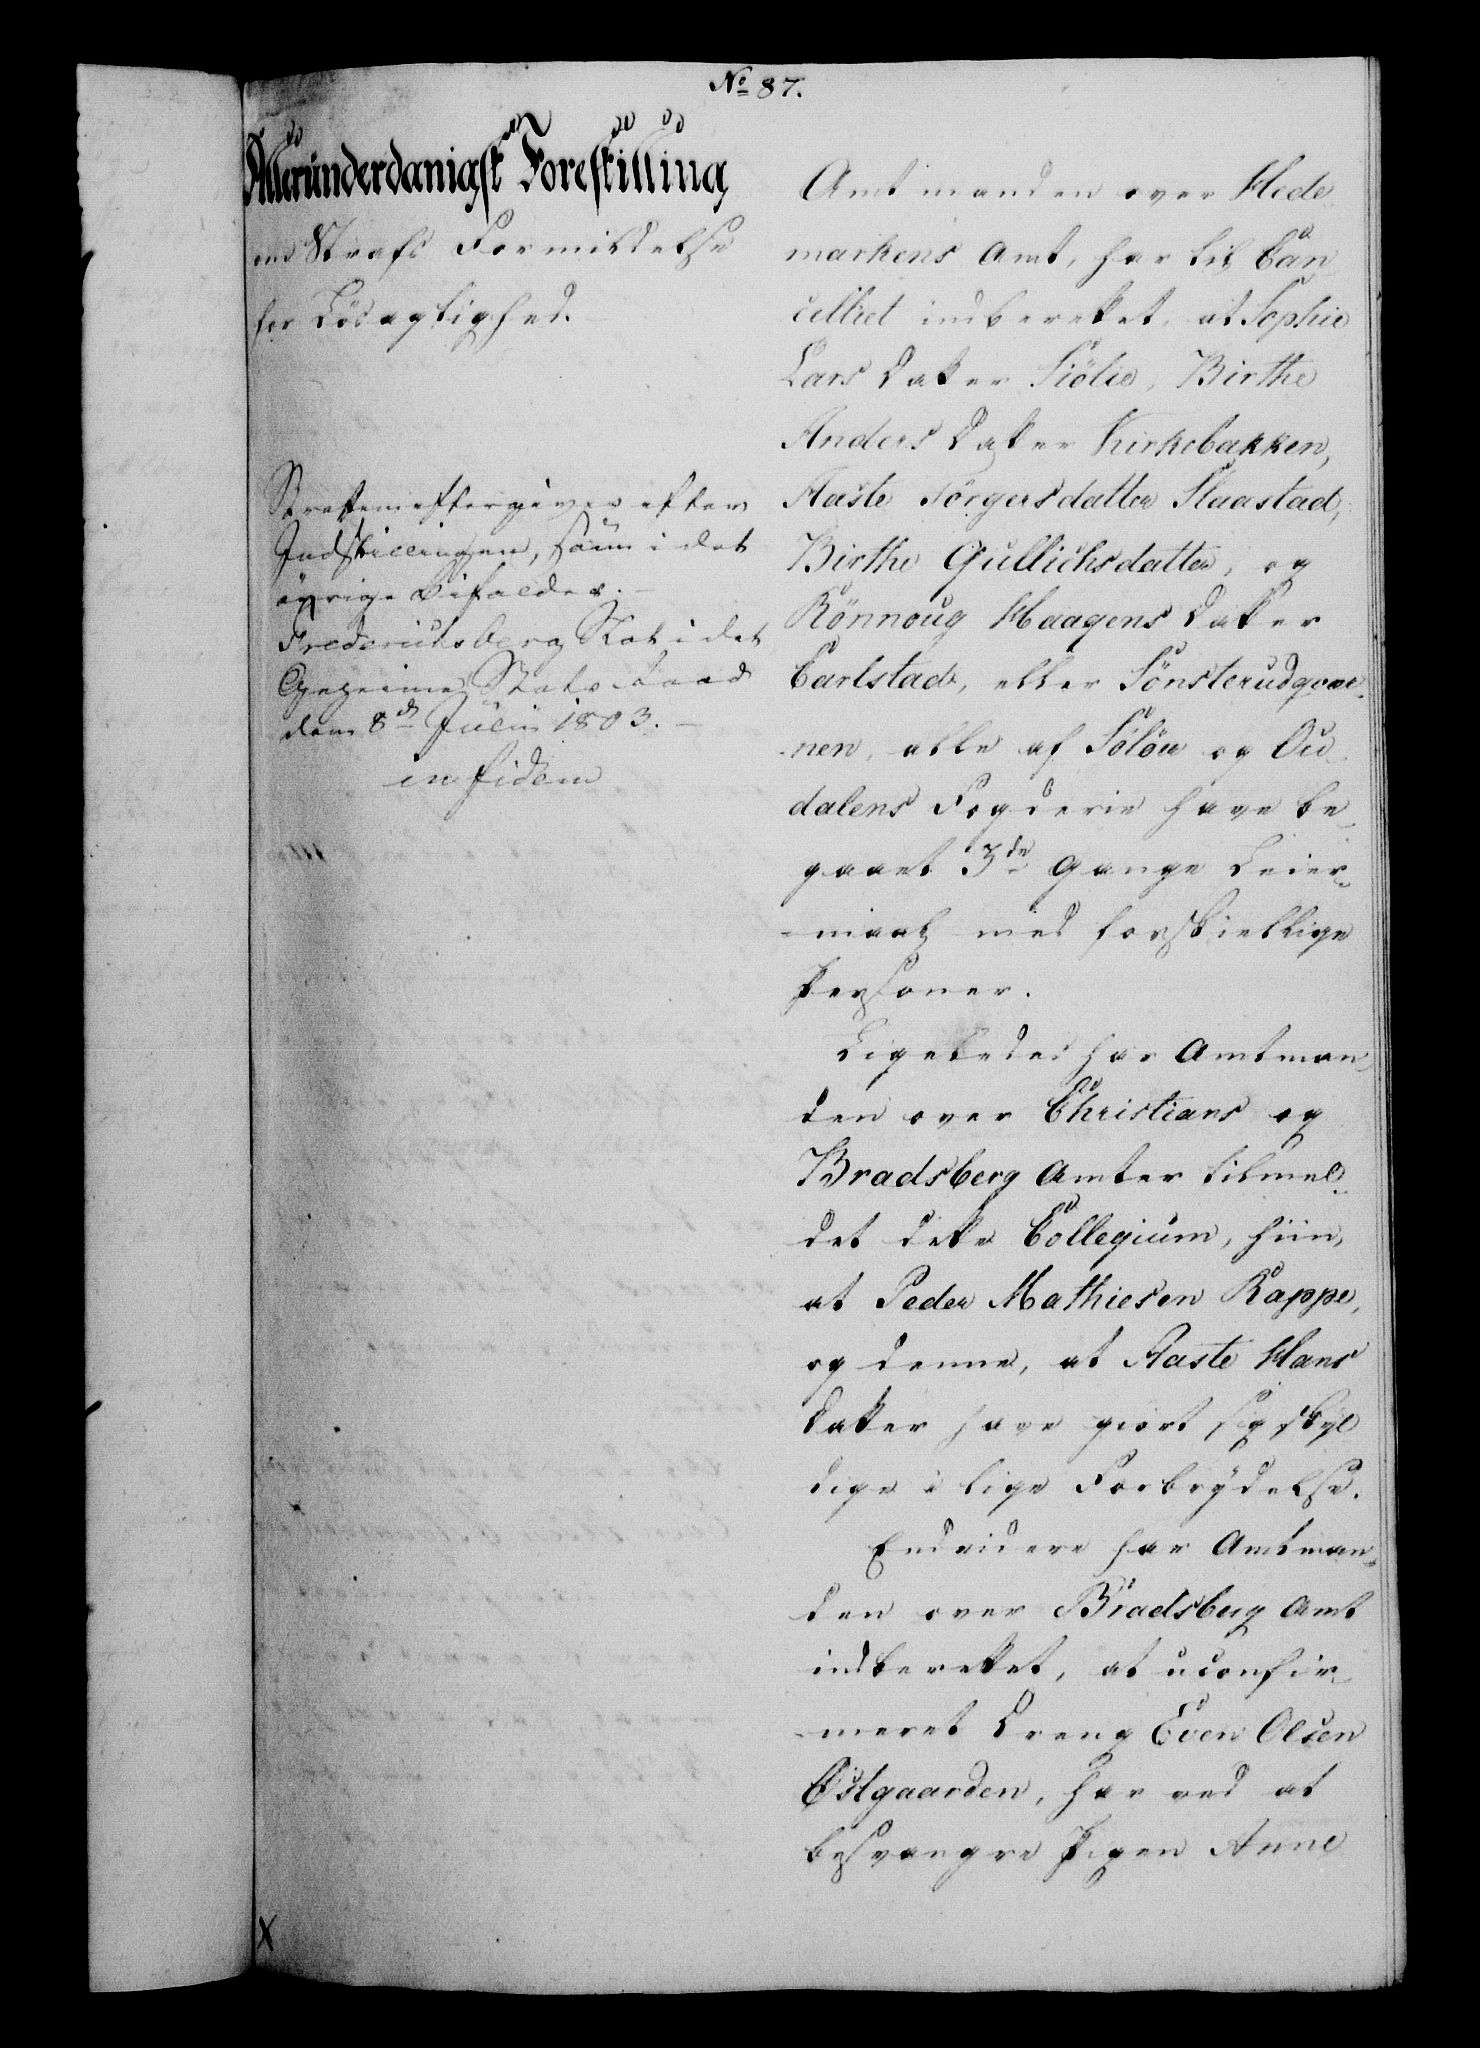 No 87.
Allerunderdanigst Forestilling
om Straffs Formildelse
for Lösagtighed.
Straffen eftergives efter
Indstillingen, som i det
øvrige bifaldes.
Frederiksberg Slot i det
Geheime Stats Raad
den 8de Julii 1803.
in fidem
Amtmanden over Hede-
markens Amt, har til Can-
celliet indberettet, at Sophie
Lars Datter Siölie, Birthe
Anders Datter Kirkebakken,
Aaste Törgersdatter Slaastad,
Birthe Gullichsdatter, og
Rönnoug Haagens Datter
Carlstad, eller Sönsterudqvær-
nen, alle af Solöer og Ou-
dalens Fogderie have be-
gaaet 3de Gange Leier-
maal med forskiellige
Personer.
Ligeledes har Amtman-
den over Christians og
Bradsberg Amter tilmel-
det dette Collegium, hiin,
at Peder Mathiesen Rappe,
og denne, at Aaste Hans
Datter have giort sig skyl-
dige i lige Forbrydelse.
Endvidere har Amtman-
den over Bradsberg Amt
indberettet, at uconfir-
meret Dreng Even Olsen
Östgaarden, har ved at
besvangre Pigen Anne